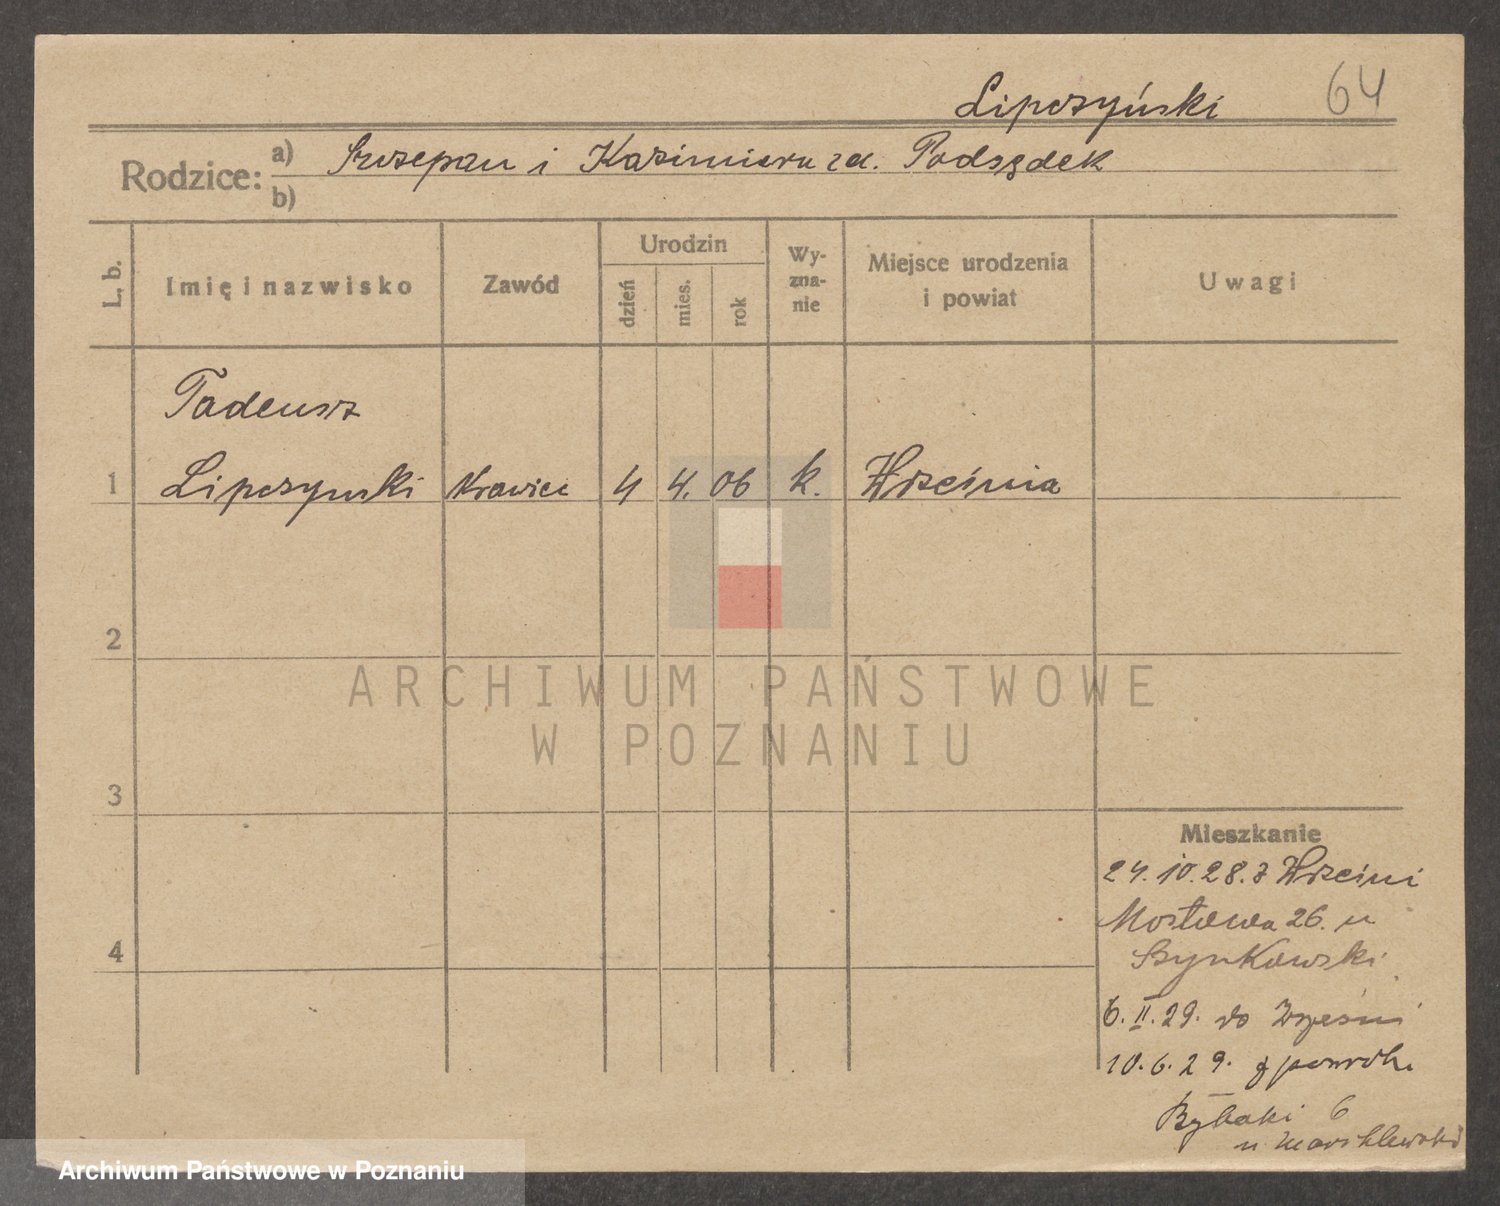 64
Lipczyński
Rodzice: a) Szczepan i Kazimiera zd. Podsędek
b)
L. b.
Imię i nazwisko
Zawód
Urodzin
dzień
mies.
rok
Wy-
zna-
nie
Miejsce urodzenia
i powiat
Uwagi
Tadeusz
1 Lipczynski Krawiec 4 4. 06 k. Września
2
3
4
Mieszkanie
24.10.28. z Wrześni
Mostowa 26. u
Szynkowski
6.II.29. do Wrześni
10.6.29. z powrotem
Rybaki 6
u Marchlewski
ARCHIWUM PAŃSTWOWE
W POZNANIU
Archiwum Państwowe w Poznaniu